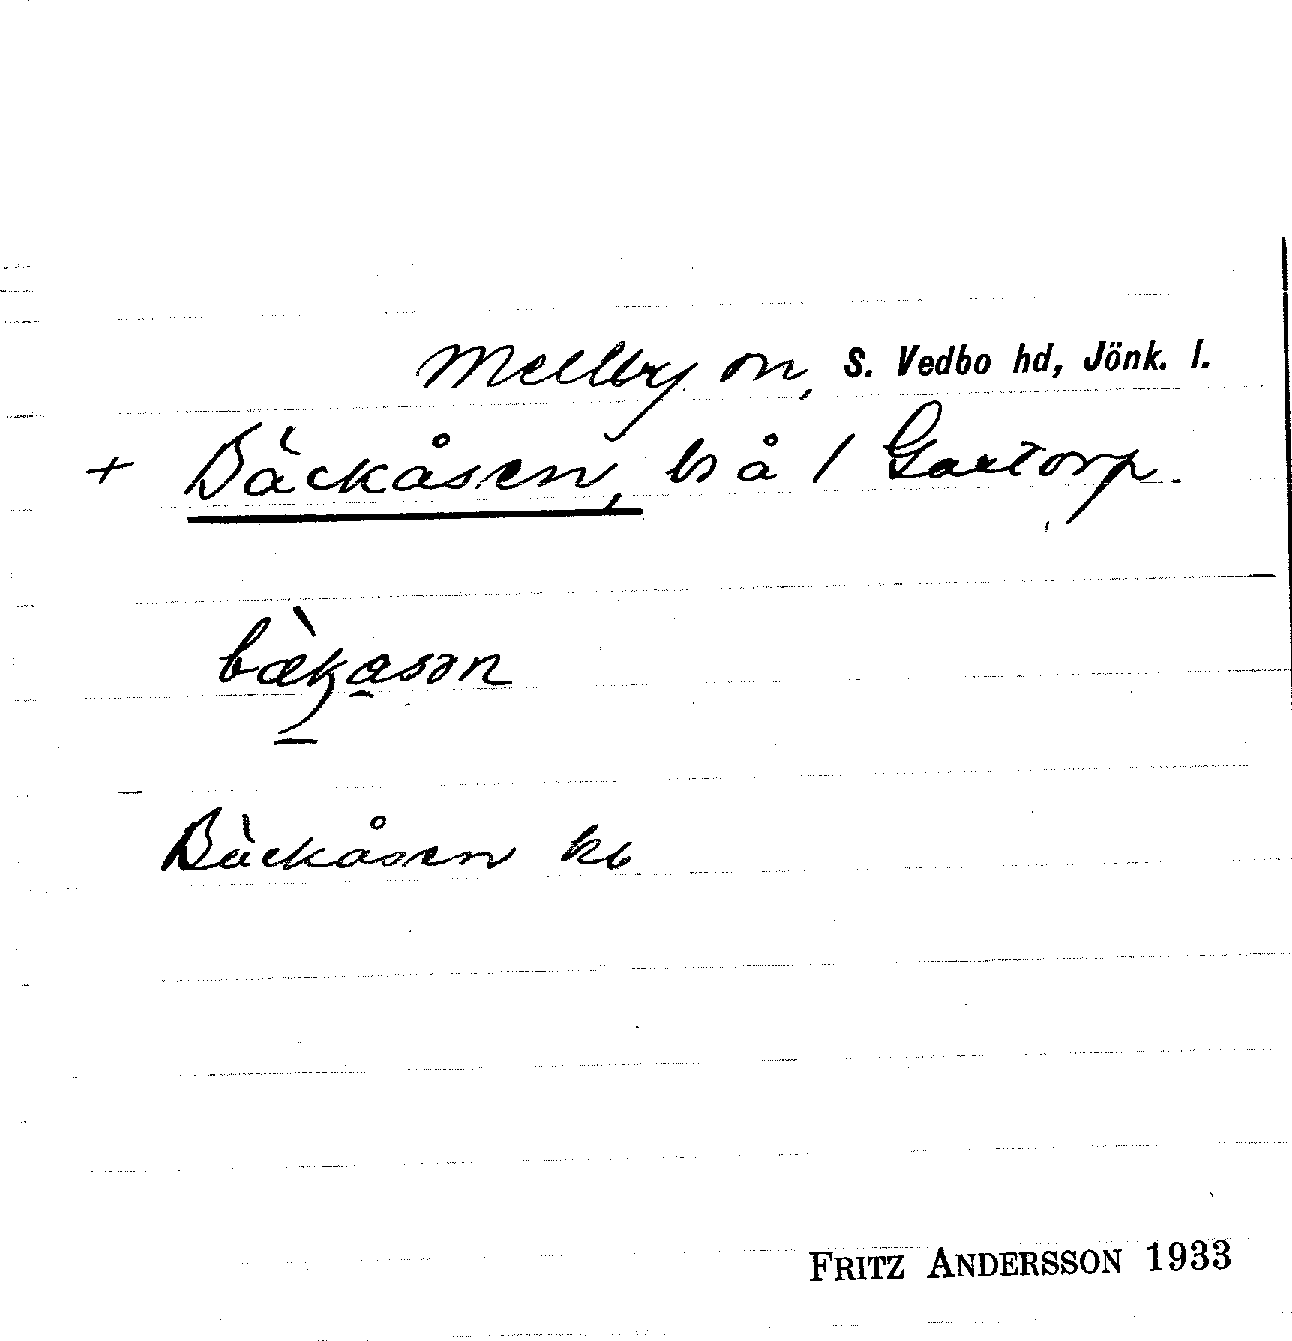 Mellby sn, S. Vedbo hd, Jönk. l.
+ Bäckåsen, bs å 1 Gartorp.
bæ̀kasən
Bäckåsen kb
FRITZ ANDERSSON 1933